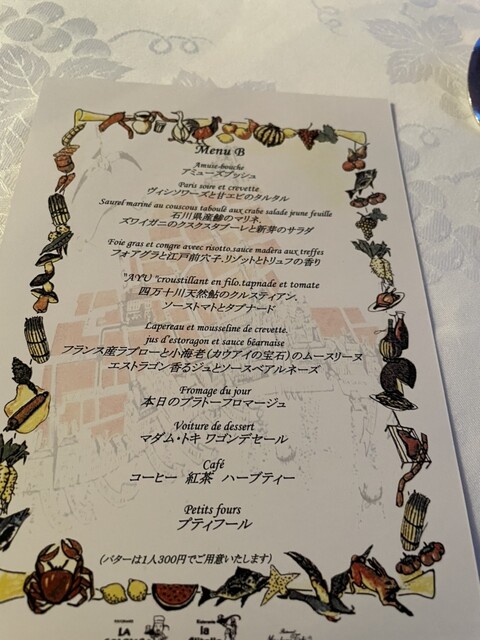 Menu B
Amuse-bouche
アミューズブッシュ
Paris soire et crevette
ヴィシソワーズと甘エビのタルタル
Saurel mariné au couscous taboulé aux crabe salade jeune feuille
石川県産鯵のマリネ.
ズワイガニのクスクスタブーレと新芽のサラダ
Foie gras et congre aveec risotto.sauce madèra aux treffes
フォアグラと江戸前穴子.リゾットとトリュフの香り
"AYU "croustillant en filo.tapnade et tomate
四万十川天然鮎のクルスティアン.
ソーストマトとタプナード
Lapereau et mousseline de crevette.
jus d'estoragon et sauce béarnaise
フランス産ラプローと小海老(カウアイの宝石)のムースリーヌ
エストラゴン香るジュとソースベアルネーズ
Fromage du jour
本日のプラトーフロマージュ
Voiture de dessert
マダム・トキ ワゴンデセール
Café
コーヒー 紅茶 ハーブティー
Petits fours
プティフール
(バターは1人300円でご用意いたします)
LA
la